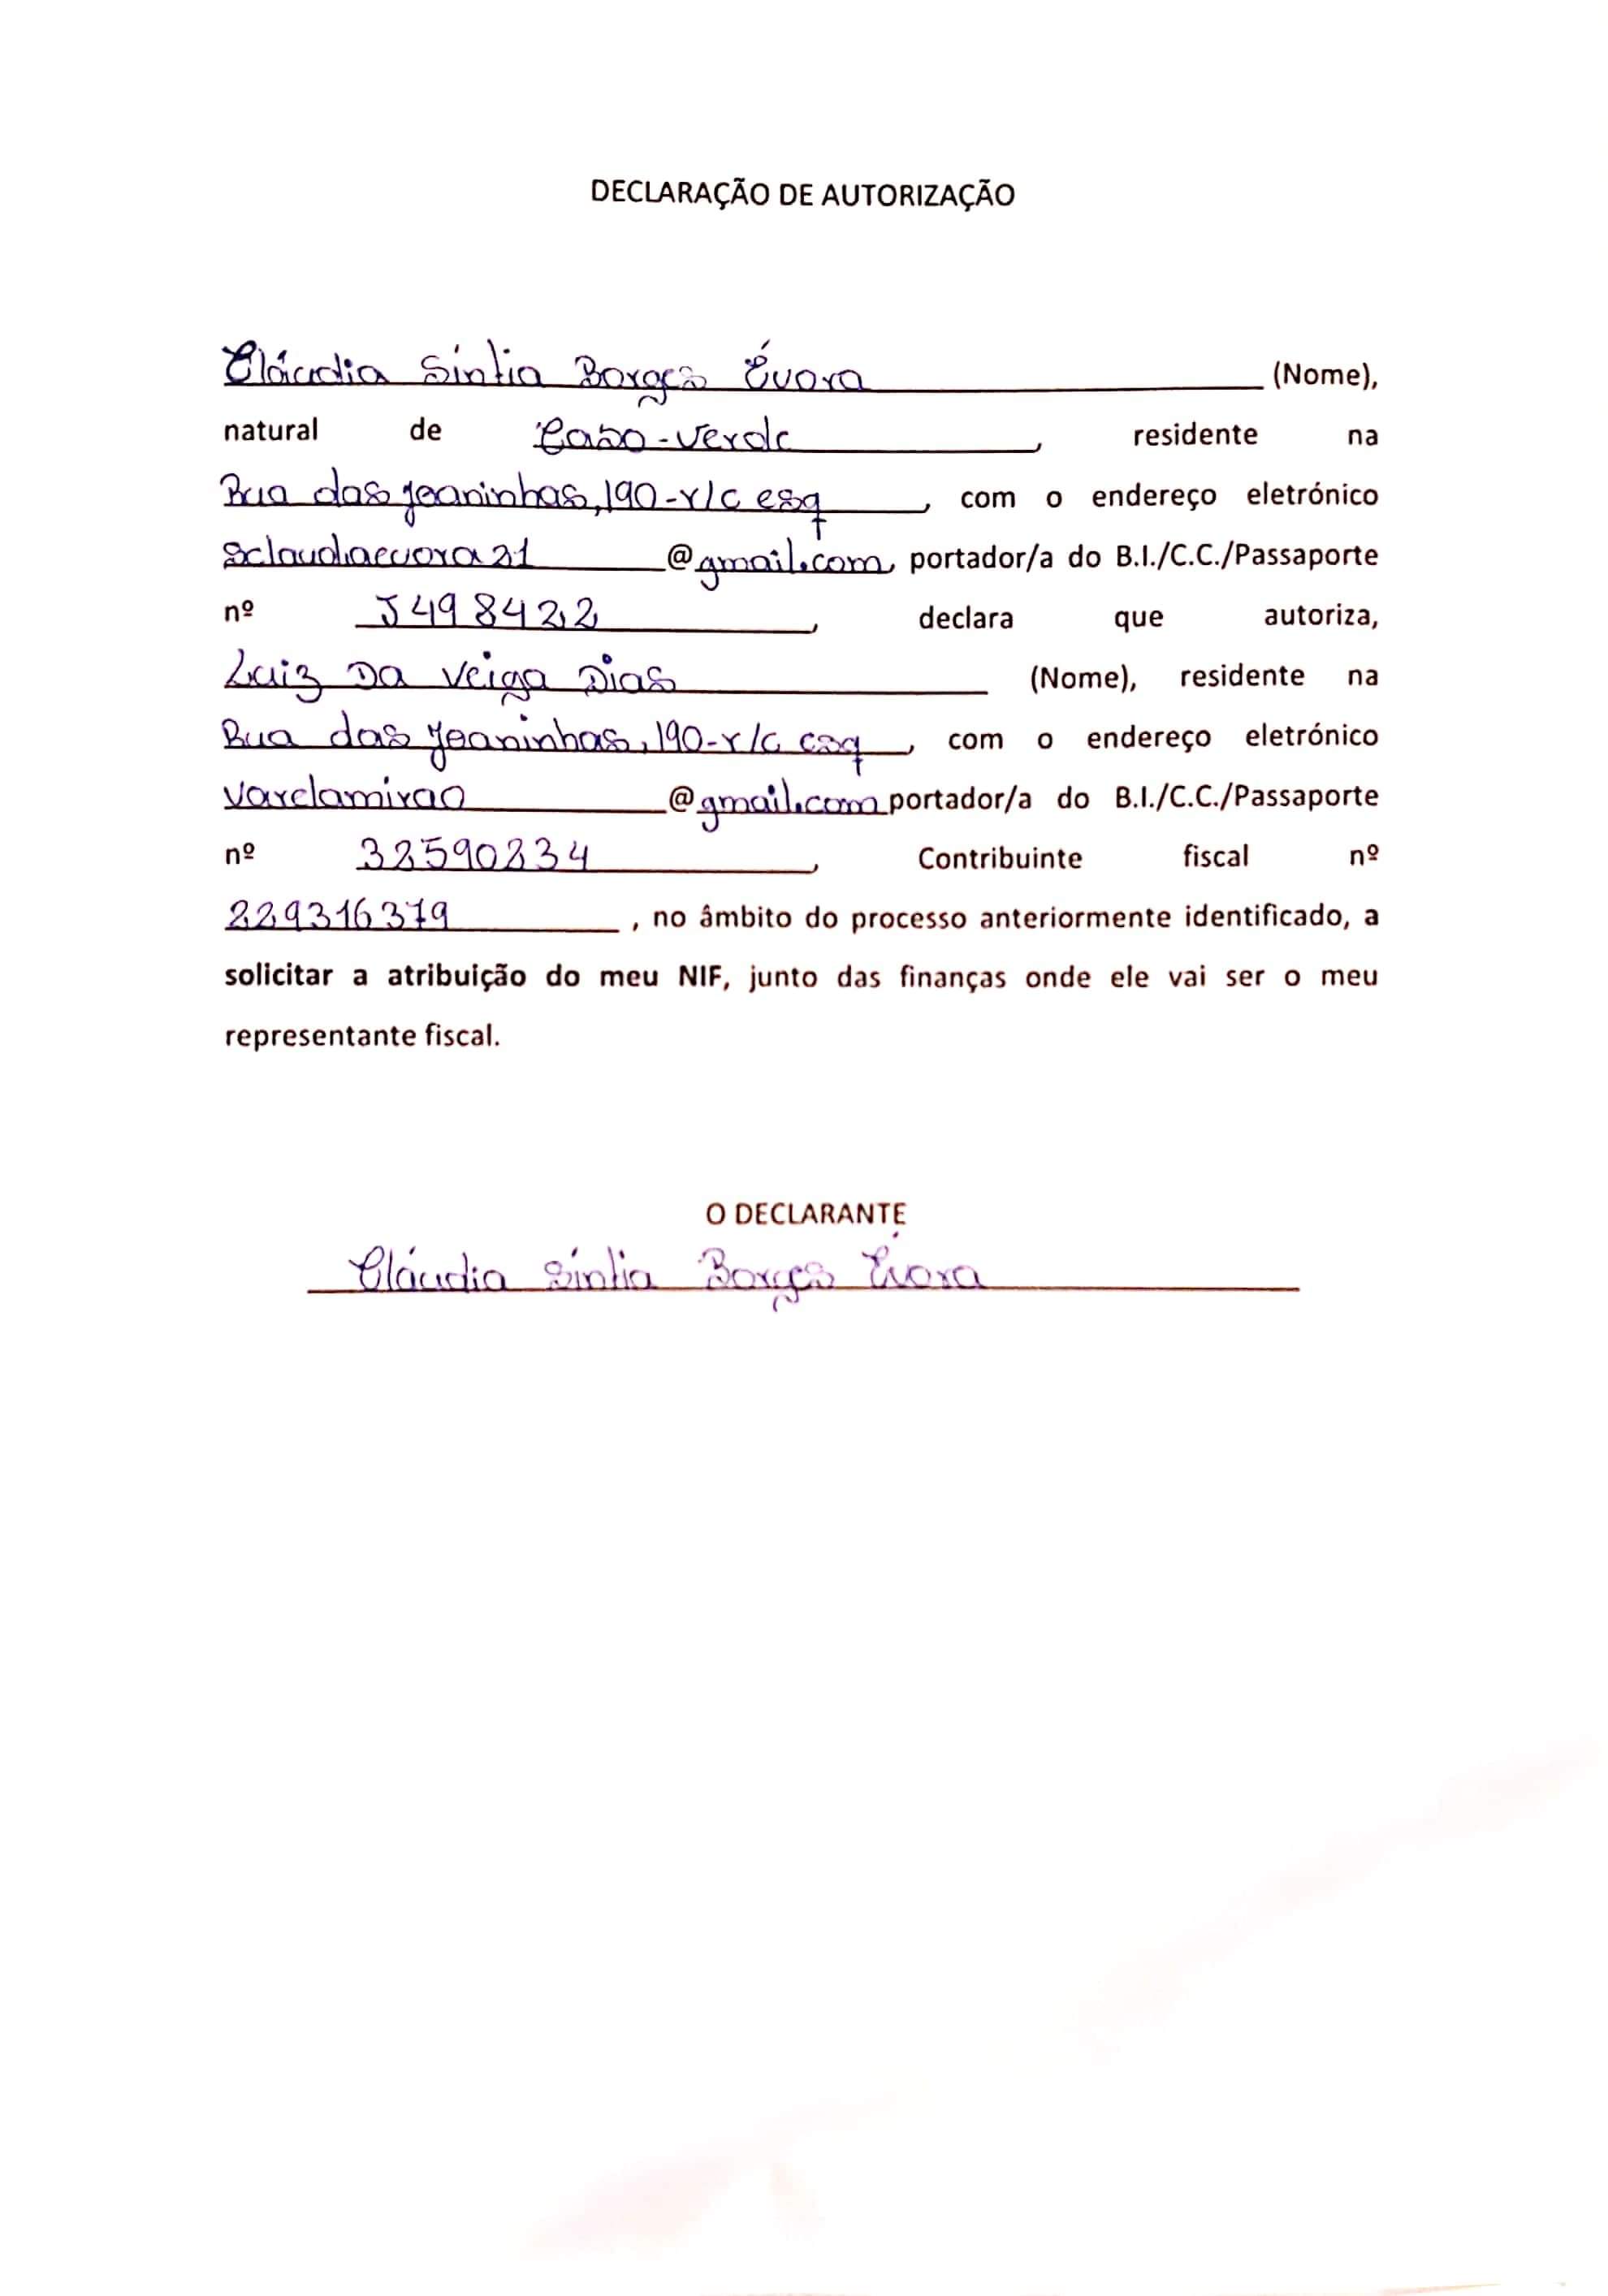 DECLARAÇÃO DE AUTORIZAÇÃO
Cláudia Síntia Borges Évora (Nome),
natural de Cabo-Verde, residente na
Rua das Joaninhas, 190-r/c esq, com o endereço eletrónico
sclaudiaevora21@gmail.com, portador/a do B.I./C.C./Passaporte
nº J498422, declara que autoriza,
Luiz Da Veiga Dias (Nome), residente na
Rua das Joaninhas, 190-r/c esq, com o endereço eletrónico
varelamirao@gmail.com portador/a do B.I./C.C./Passaporte
nº 32590234, Contribuinte fiscal nº
229316379, no âmbito do processo anteriormente identificado, a
solicitar a atribuição do meu NIF, junto das finanças onde ele vai ser o meu
representante fiscal.
O DECLARANTE
Cláudia Síntia Borges Évora